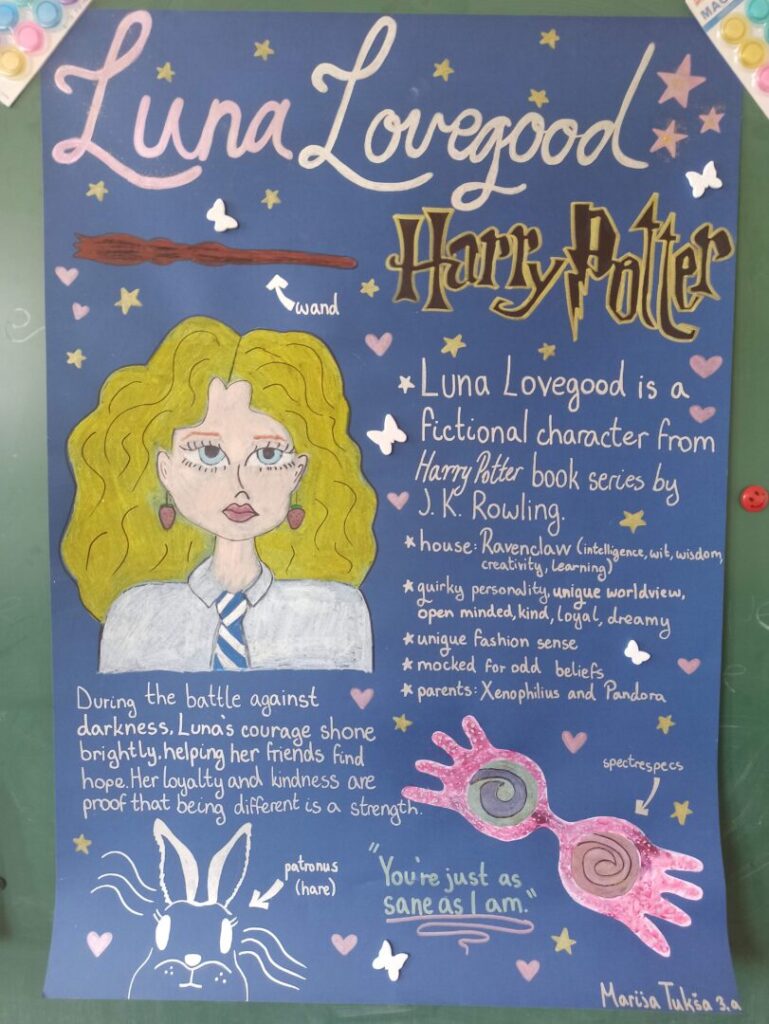 Luna Lovegood
Harry Potter
wand
Luna Lovegood is a
fictional character from
Harry Potter book series by
J. K. Rowling.
house: Ravenclaw (intelligence, wit, wisdom,
creativity, learning)
quirky personality, unique worldview,
open minded, kind, loyal, dreamy
unique fashion sense
mocked for odd beliefs
parents: Xenophilius and Pandora
During the battle against
darkness, Luna's courage shone
brightly, helping her friends find
hope. Her loyalty and kindness are
proof that being different is a strength.
spectrespecs
patronus
(hare)
"You're just as
sane as I am."
Marija Tukša 3.a